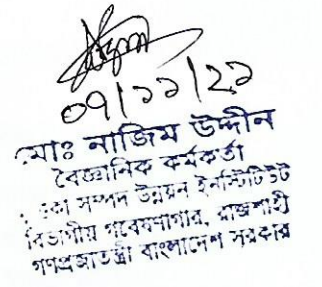 ০৭/১১/২১
মোঃ নাজিম উদ্দীন
বৈজ্ঞানিক কর্মকর্তা
সম্পদ উন্নয়ন ইনস্টিটিউট
বিভাগীয় গবেষণাগার, রাজশাহী
গণপ্রজাতন্ত্রী বাংলাদেশ সরকার